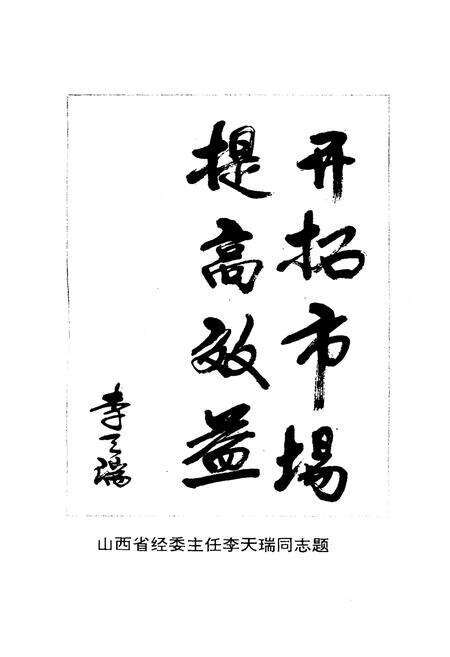 开拓市場
提高效益
李天瑞
山西省经委主任李天瑞同志题